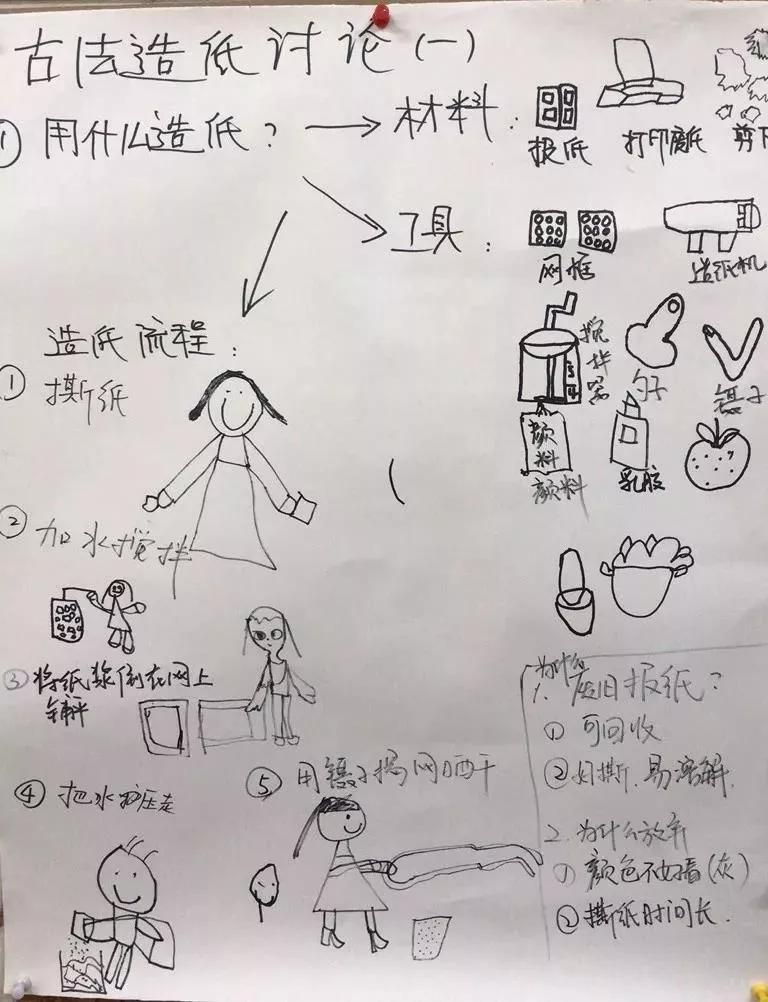 古法造纸讨论(一)
① 用什么造纸? → 材料:
报纸
打印废纸
剪下
工具:
网框
造纸机
搅拌器
勺子
镊子
颜料
颜料
乳胶
造纸流程:
① 撕纸
② 加水搅拌
③ 将纸浆倒在网上
铺平
④ 把水挤压走
⑤ 用镊子揭网晒干
1. 为什么废旧报纸?
① 可回收
② 好撕.易溶解.
2. 为什么放弃
① 颜色不好看(灰)
② 撕纸时间长.